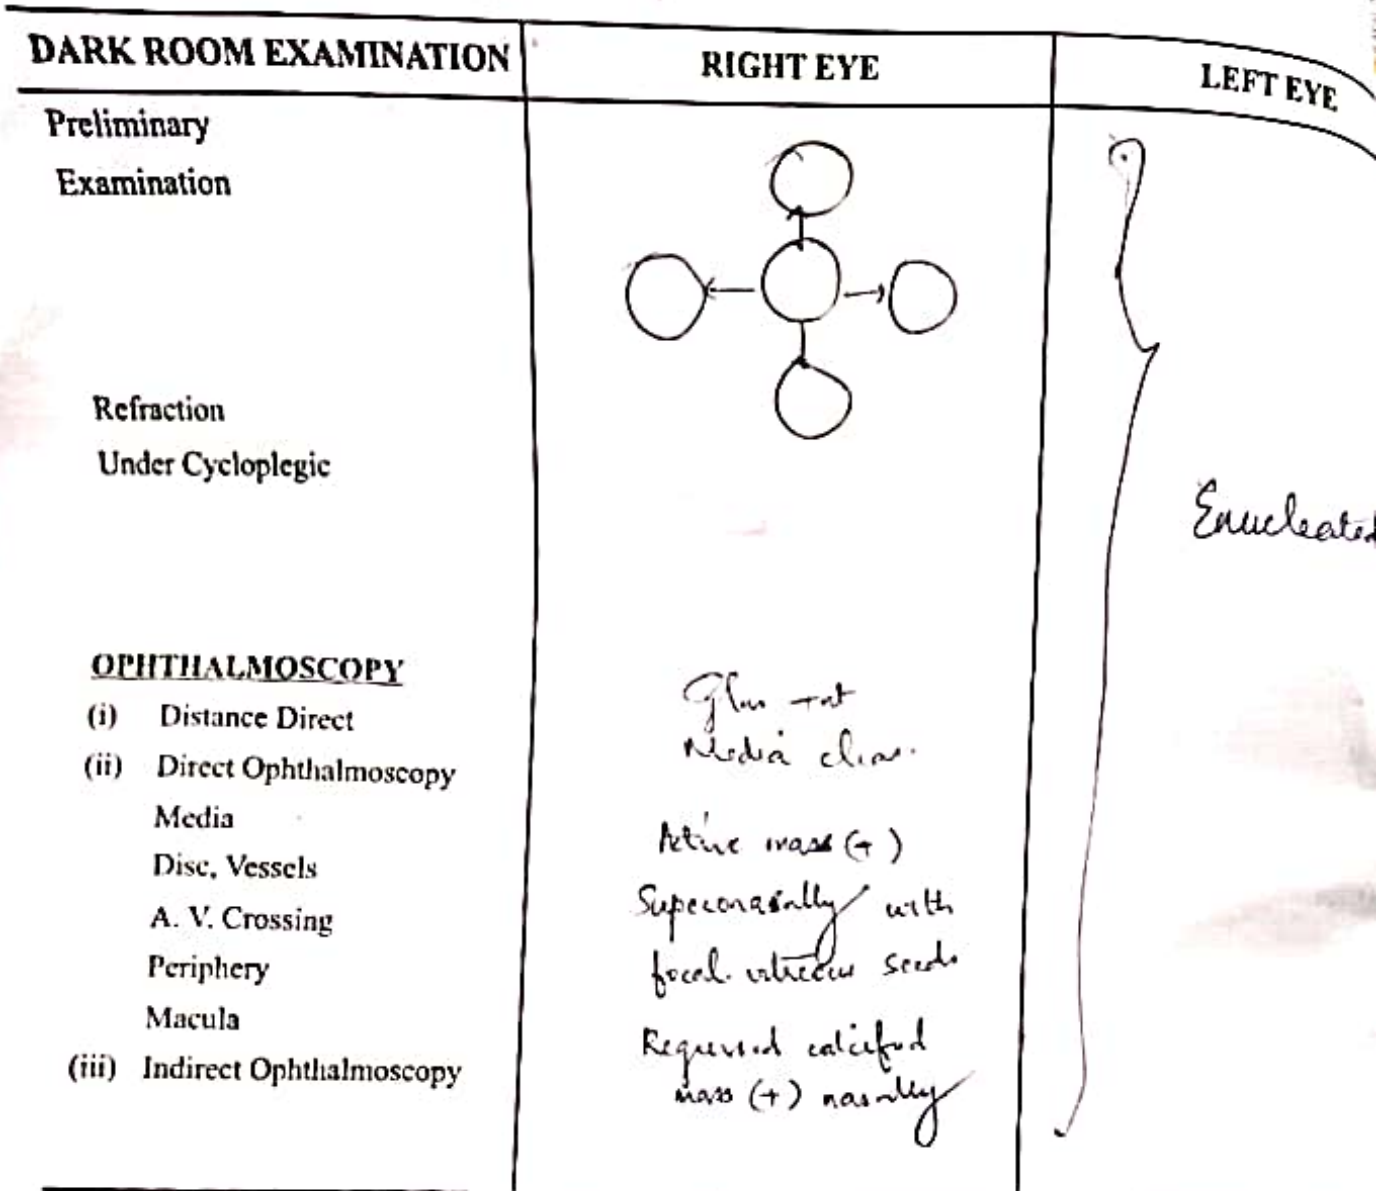 DARK ROOM EXAMINATION RIGHT EYE LEFT EYE
Preliminary
Examination
Refraction
Under Cycloplegic
Enucleated
OPHTHALMOSCOPY
(i) Distance Direct
(ii) Direct Ophthalmoscopy
Media
Disc, Vessels
A. V. Crossing
Periphery
Macula
(iii) Indirect Ophthalmoscopy
Glow
Media clear.
Active mass (+)
Superonasally with
focal vitreous seeds
Regressed calcified
mass (+) nasally